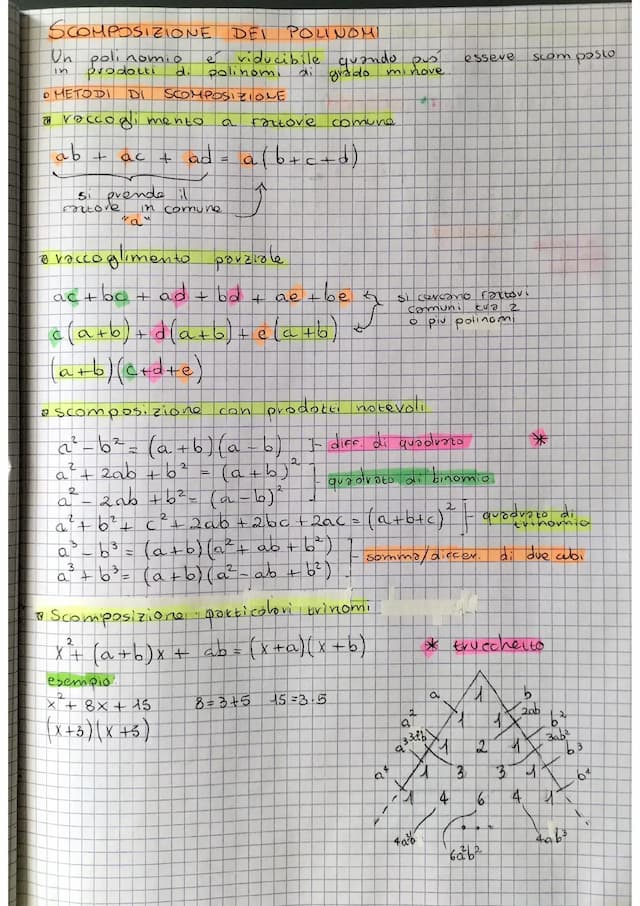 SCOMPOSIZIONE DEI POLINOMI
Un polinomio é riducibile quando può essere scomposto
in prodotti di polinomi di grado minore
METODI DI SCOMPOSIZIONE
raccoglimento a fattore comune
ab + ac + ad = a(b+c+d)
si prende il
fattore in comune
"a"
raccoglimento parziale
ac + bc + ad + bd + ae + be
si cercano fattori
comuni tra 2
o più polinomi
c(a+b) + d(a+b) + e(a+b)
(a+b)(c+d+e)
scomposizione con prodotti notevoli
a² - b² = (a+b)(a-b) diff. di quadrato *
a² + 2ab + b² = (a+b)²
a² - 2ab + b² = (a-b)²
quadrato di binomio
a² + b² + c² + 2ab + 2bc + 2ac = (a+b+c)² quadrato di
trinomio
a³ - b³ = (a+b)(a² + ab + b²)
a³ + b³ = (a+b)(a² - ab + b²)
somma/differ. di due cubi
Scomposizione particolari trinomi
x² + (a+b)x + ab = (x+a)(x+b)
* trucchetto
esempio
x² + 8x + 15 8=3+5 15=3·5
(x+3)(x+5)
a 1 b
a² 1 1 2ab b²
1 2 1 3ab² b³
a⁴ 1 3 3 1 b⁴
1 4 6 4 1
...
6a²b² 4ab³